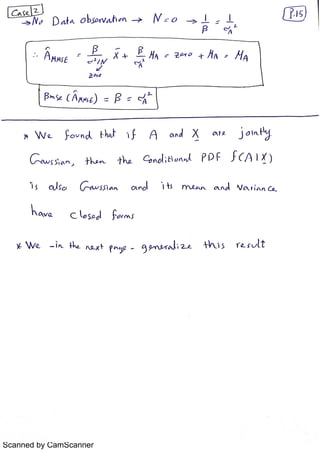 Case 2 P.15
→ No Data observation → N=0 → 1/β = 1/σA²
∴ ÂMMSE = β/(σ²/N) X̄ + β/σA² MA = zero + MA = MA
zero
Bmse (ÂMMSE) = β = σA²
* We found that if A and X are jointly
Gaussian, then the Conditional PDF f(A|X)
is also Gaussian and its mean and Variance
have closed forms
* We -in the next page- generalize this result
Scanned by CamScanner